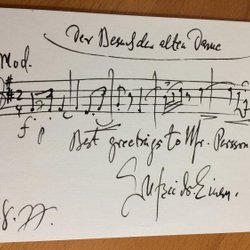 Der Besuch der alten Dame
Mod.
f p
Best greetings to Mr. Persson
Gottfried v. Einem